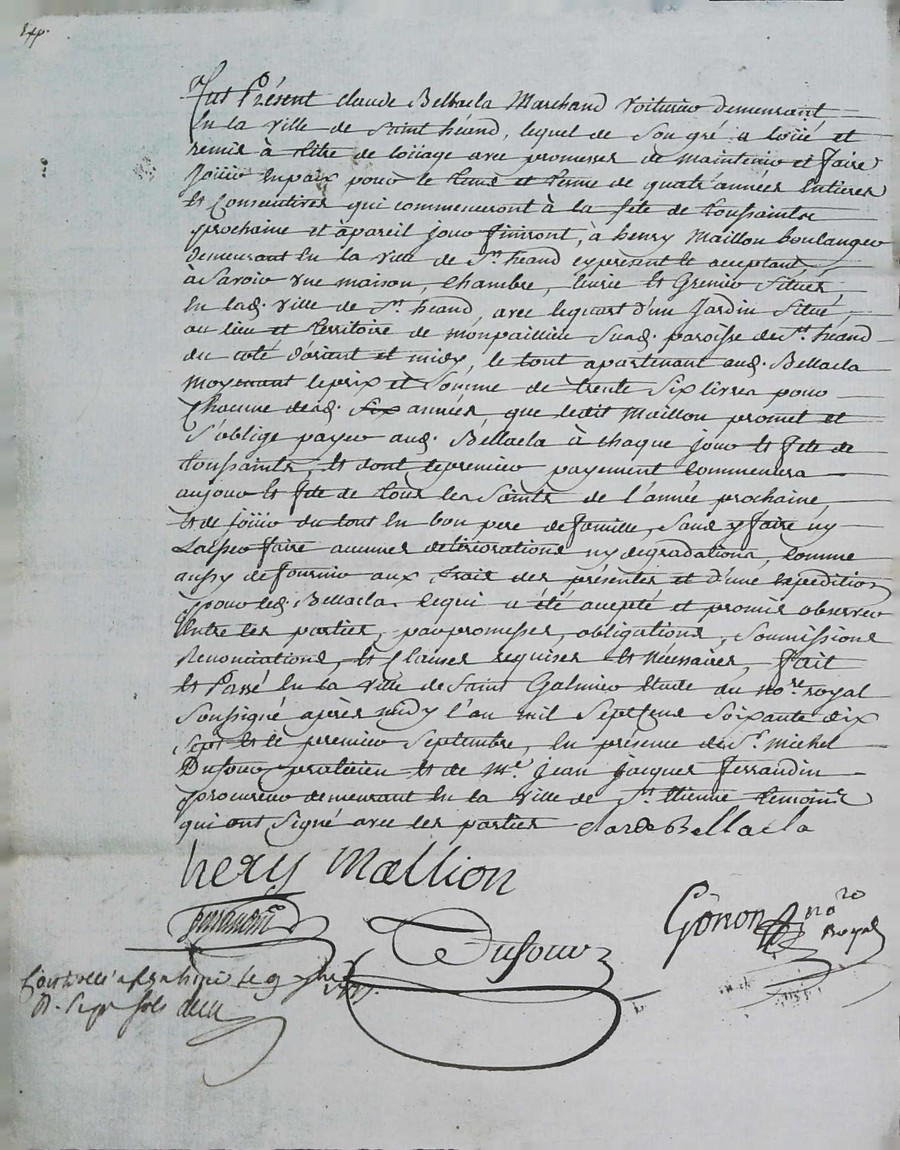 Fut Présent claude Bellacla Marchand Voiturier demeurant
En la ville de Saint héand, lequel de Son gré a loüé et
remis à titre de loüage avec promesses de maintenir et faire
Joüir enpaix pour le tems et terme de quatre années Entieres
Et Consecutives qui commenceront à la fete de toussaints
prochaine et àpareil jour finiront, à henry Maillon boulanger
demeurant En la ville de St héand cy present et acceptant,
à Savoir une maison, Chambre, Ecurie Et Grenier Situés,
En lad. ville de St héand, avec lequart d'un Jardin Situé,
au lieu et territoire de monpaillier Susd. paroisse de St héand
du coté d'orient et midy, le tout apartenant aud. Bellacla
moyenant leprix et Somme de trente Six livres pour
Chacune desd. Six années que ledit Maillon promet et
S'oblige payer aud. Bellacla à chaque jour Et fete de
toussaints, Et dont lepremier payement Commencera
aujour Et fete de tous les Saints de l'année prochaine,
Et de joüir du tout En bon pere defamille, Sans y faire ny
Laisser faire aucunes déteriorations ny degradations, Comme
aussy defournir aux frais des présentes et d'une Expedition
pour led. Bellacla. Cequi a été accepté et promis observer
Entre les parties, par promesses, obligations, Soumissions
Renonciations, Et Clauses requises Et Nécessaires, fait
Et Passé En la Ville de Saint Galmier Etude du Nore. royal
Soussigné après midy l'an mil Sept Cens Soixante dix
Sept Et le premier Septembre, En présence de Sr. Michel
Dufour praticien Et de Me. Jean Jacques ferrandin
procureur demeurant En la Ville de St. Etienne temoins
qui ont Signé avec les parties clarde Bellacla
hery Mallion
ferrandin
Dufour
Gonon nore
Royal
Controllé a le 9
R. Sept Sols